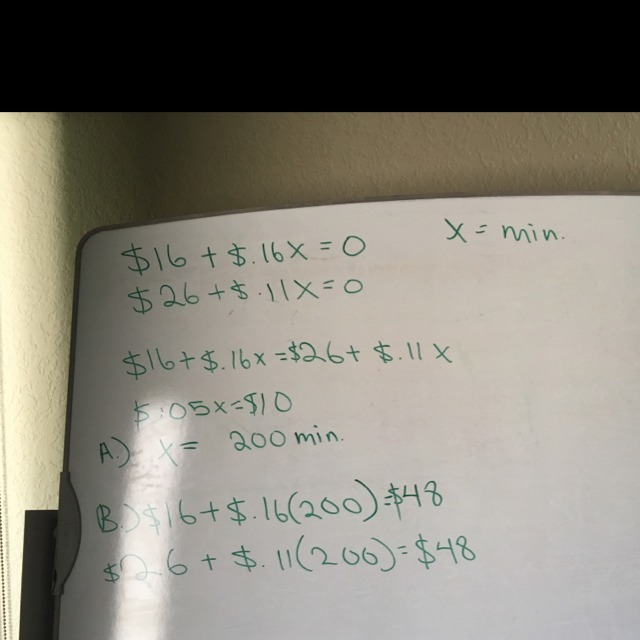 $16 + $.16x = 0
x = min.
$26 + $.11x = 0
$16 + $.16x = $26 + $.11x
$.05x = $10
A.) x = 200 min.
B.) $16 + $.16(200) = $48
$26 + $.11(200) = $48